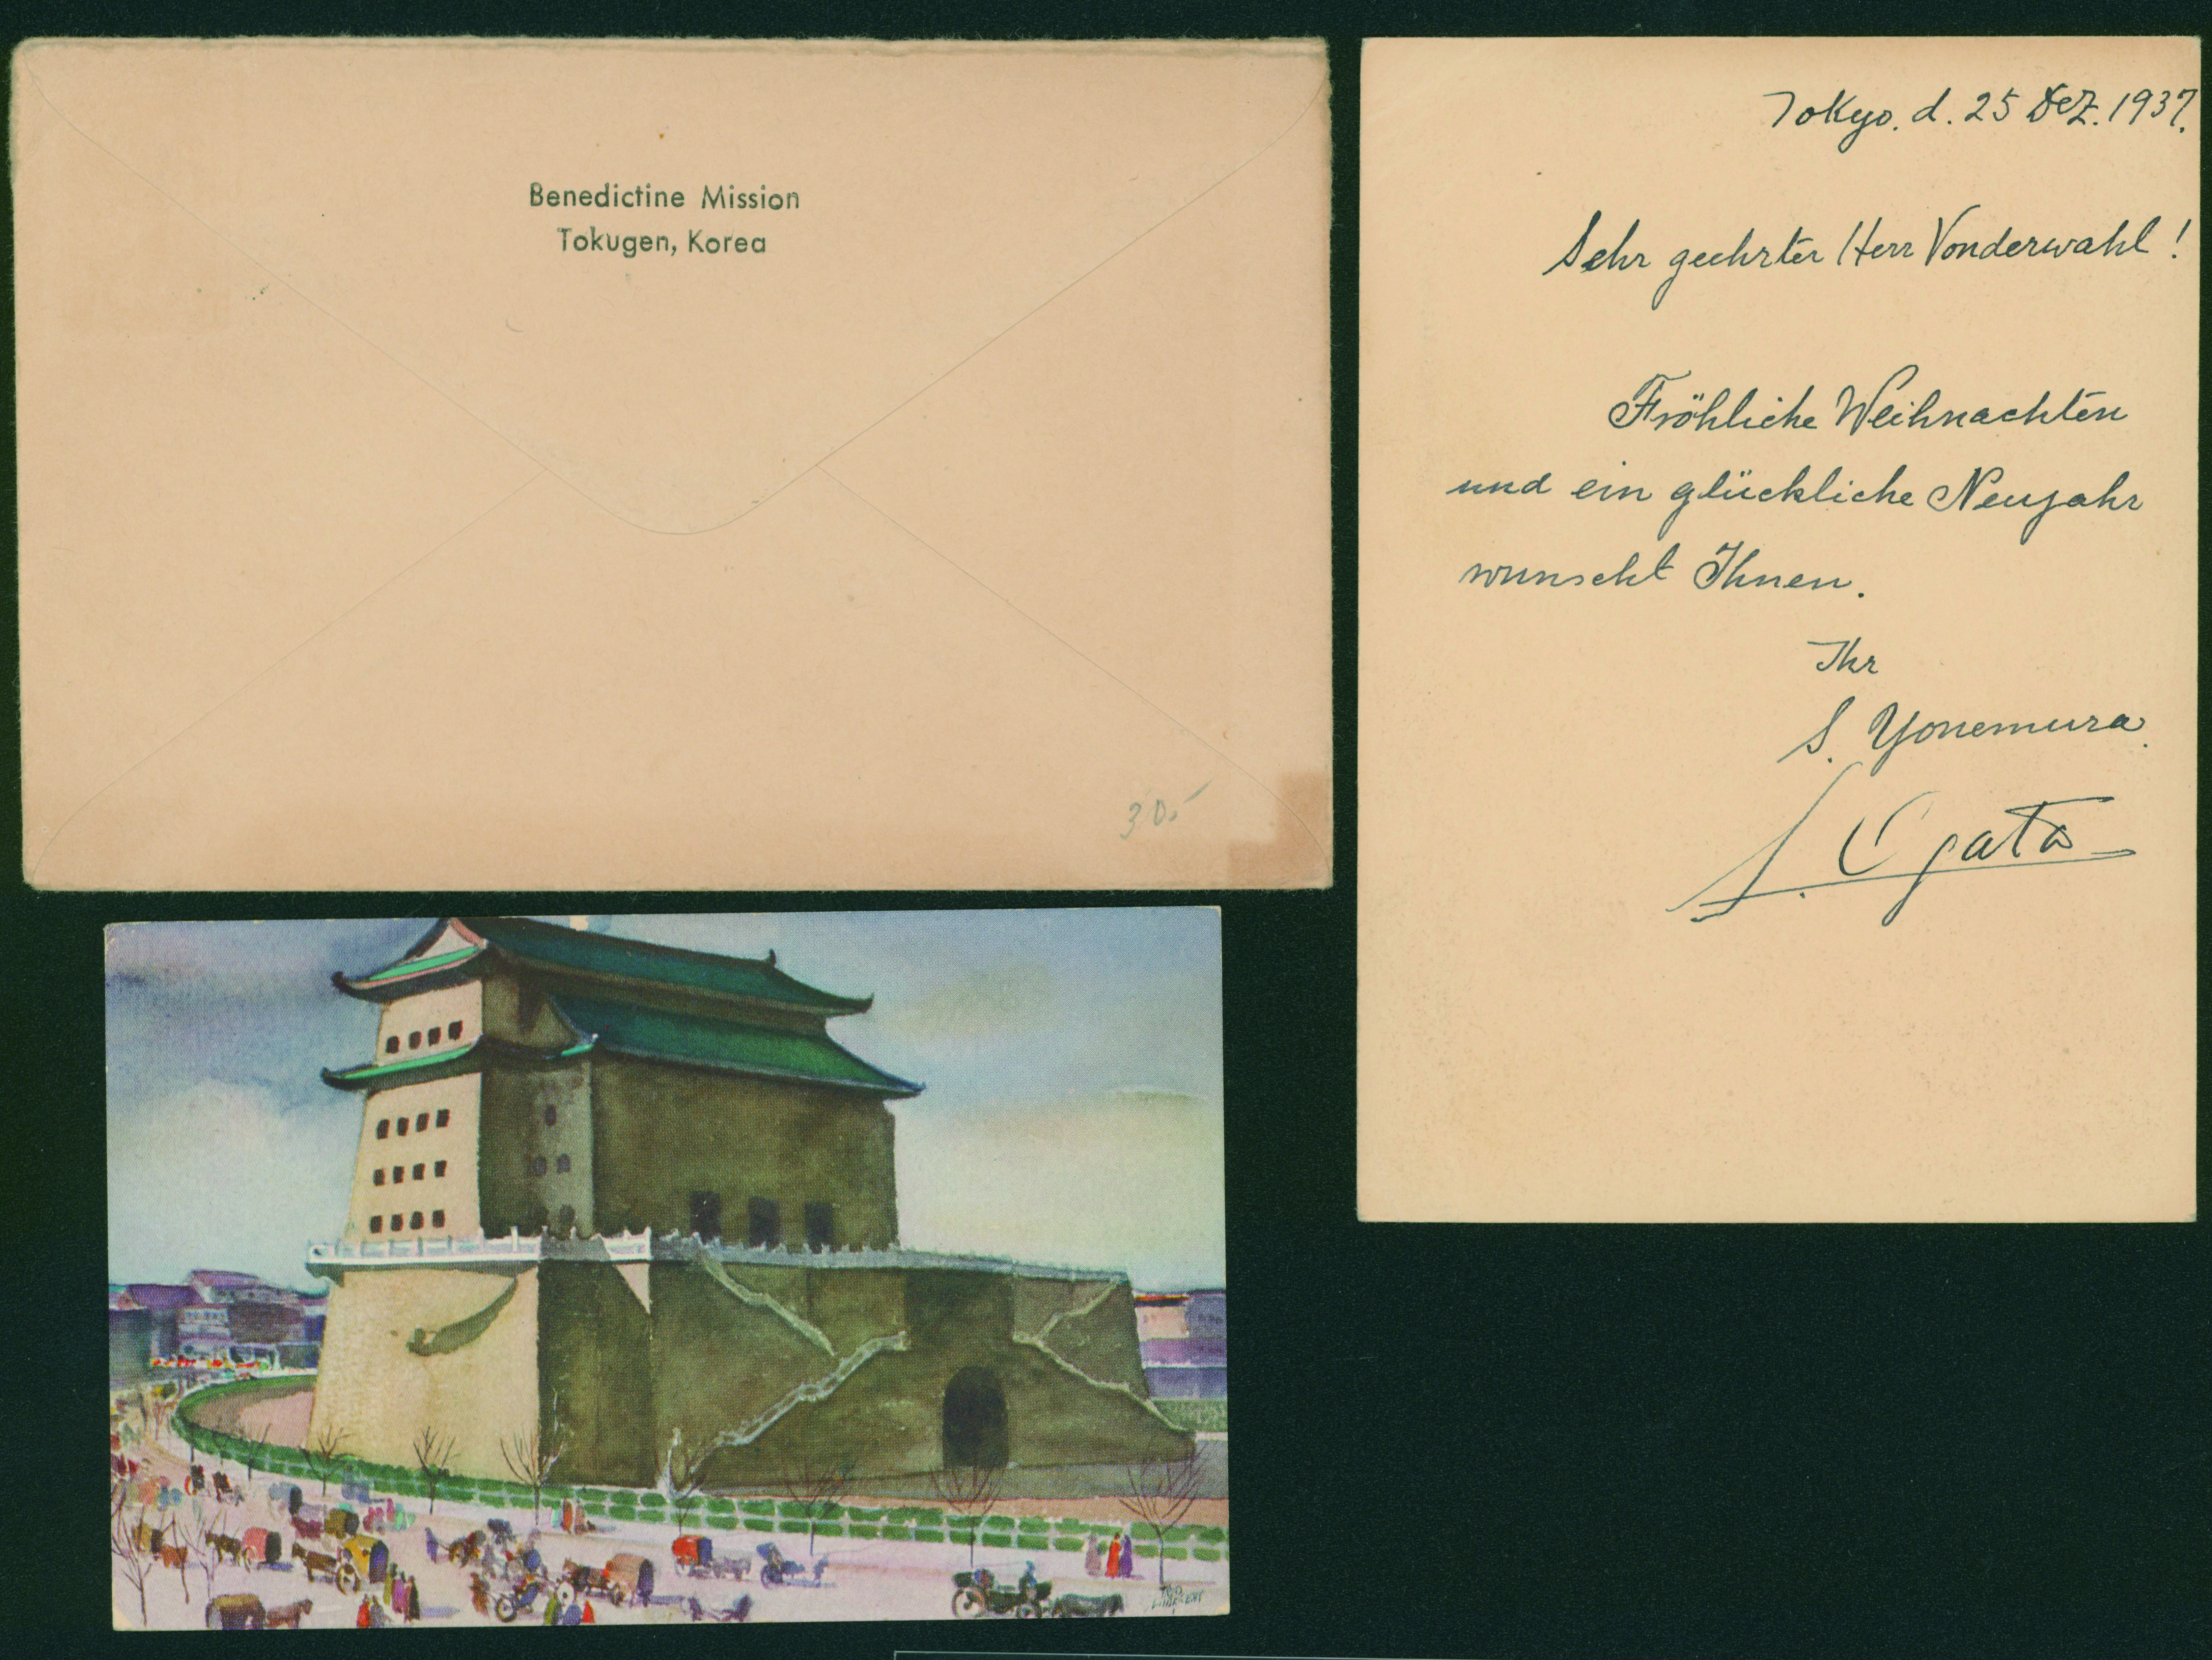 Benedictine Mission
Tokugen, Korea
30.-
Tokyo. d. 25 Dez. 1937.
Sehr geehrter Herr Vonderwahl!
Fröhliche Weihnachten
und ein glückliche Neujahr
wunscht Ihnen.
Ihr
S. Yonemura.
S. Ogata